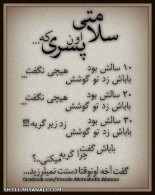 سلامتی
اون پسری
که...
۱۰ سالش بود
باباش زد تو گوشش هیچی نگفت...
۲۰ سالش بود
باباش زد تو گوشش هیچی نگفت...
۳۰ سالش بود
باباش زد تو گوشش زد زیر گریه...!!!
باباش گفت:
چرا گریه میکنی..؟
گفت: آخه اونوقتا دستت نمیلرزید...
SHEIL-MIYANALI.COM